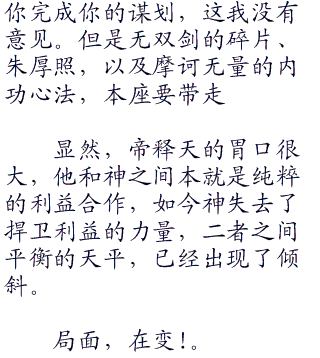 你完成你的谋划，这我没有
意见。但是无双剑的碎片、
朱厚照，以及摩诃无量的内
功心法，本座要带走
显然，帝释天的胃口很
大，他和神之间本就是纯粹
的利益合作，如今神失去了
捍卫利益的力量，二者之间
平衡的天平，已经出现了倾
斜。
局面，在变!。